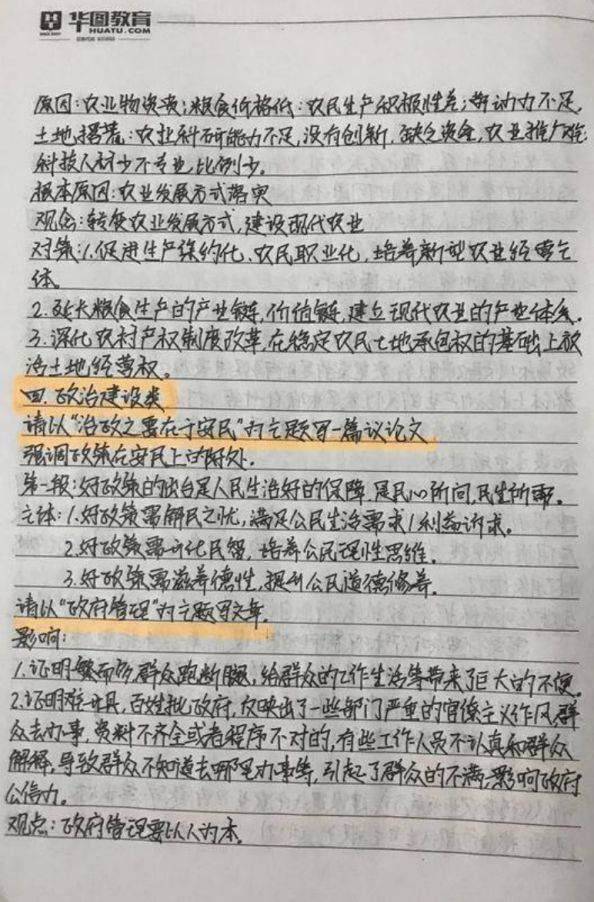 华图教育
HUATU.COM
原因:农业物资贵;粮食价格低:农民生产积极性差;劳动力不足,
土地撂荒:农业科研能力不足,没有创新,缺乏资金,农业推广难;
科技人材少不专业,比例少。
根本原因:农业发展方式落实
观念:转变农业发展方式,建设现代农业
对策:1.促进生产集约化、农民职业化,培养新型农业经营主
体。
2.延长粮食生产的产业链,价值链,建立现代农业的产业体系。
3.深化农村产权制度改革,在稳定农民土地承包权的基础上放
活土地经营权。
四.政治建设类
请以“治政之要在于安民”为主题写一篇议论文
强调政策在安民上的好处。
第一段:好政策的出台是人民生活好的保障,是民心所向,民生所要。
主体:1.好政策需解民之忧,满足公民生活需求/利益诉求。
2.好政策需开化民智,培养公民理性思维。
3.好政策需滋养德性,提升公民道德修养。
请以“政府管理”为主题写文章。
影响:
1.证明繁而多,群众跑断腿,给群众的工作生活等带来了巨大的不便。
2.证明难开具,百姓批政府,反映出了一些部门严重的官僚主义作风,群
众去办事,资料不齐全或者程序不对的,有些工作人员不认真和群众
解释,导致群众不知道去哪里办事等,引起了群众的不满,影响政府
公信力。
观点:政府管理要以人为本.